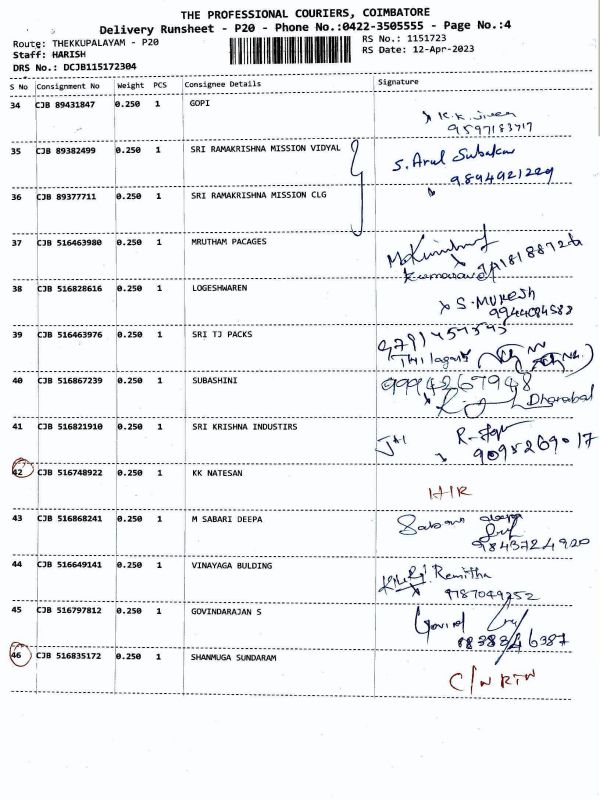 THE PROFESSIONAL COURIERS, COIMBATORE
Delivery Runsheet - P20 - Phone No.:0422-3505555 - Page No.:4
Route: THEKKUPALAYAM - P20
RS No.: 1151723
Staff: HARISH
RS Date: 12-Apr-2023
DRS No.: DCJB115172304
S No Consignment No Weight PCS Consignee Details Signature
34 CJB 89431847 0.250 1 GOPI
9597183717
35 CJB 89382499 0.250 1 SRI RAMAKRISHNA MISSION VIDYAL
S. Arul Subakar
9894921229
36 CJB 89377711 0.250 1 SRI RAMAKRISHNA MISSION CLG
37 CJB 516463980 0.250 1 MRUTHAM PACAGES
38 CJB 516828616 0.250 1 LOGESHWAREN
S. MUKESH
9944084588
39 CJB 516463976 0.250 1 SRI TJ PACKS
40 CJB 516867239 0.250 1 SUBASHINI
9994267948
41 CJB 516821910 0.250 1 SRI KRISHNA INDUSTIRS
9095269017
42 CJB 516748922 0.250 1 KK NATESAN
H/R
43 CJB 516868241 0.250 1 M SABARI DEEPA
9843724920
44 CJB 516649141 0.250 1 VINAYAGA BULDING
Remitha
9787049252
45 CJB 516797812 0.250 1 GOVINDARAJAN S
Govind
9838846387
46 CJB 516835172 0.250 1 SHANMUGA SUNDARAM
C/N RTN